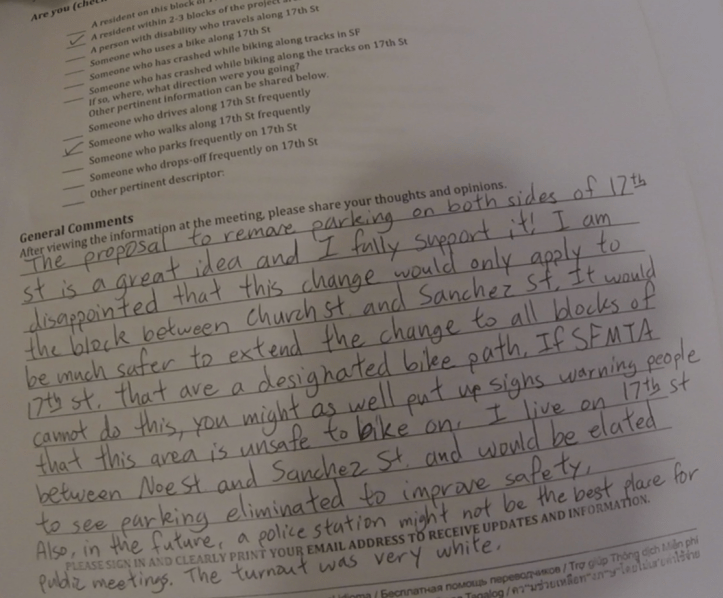 Are you (chec
A resident on this block of
✓ A resident within 2-3 blocks of the project
A person with disability who travels along 17th St
Someone who uses a bike along 17th St
Someone who has crashed while biking along tracks in SF
Someone who has crashed while biking along the tracks on 17th St
If so, where, what direction were you going?
Other pertinent information can be shared below.
Someone who drives along 17th St frequently
✓ Someone who walks along 17th St frequently
Someone who parks frequently on 17th St
Someone who drops-off frequently on 17th St
Other pertinent descriptor:
General Comments
After viewing the information at the meeting, please share your thoughts and opinions.
The proposal to remove parking on both sides of 17th
st is a great idea and I fully support it! I am
disappointed that this change would only apply to
the block between Church st. and Sanchez St. It would
be much safer to extend the change to all blocks of
17th st. that are a designated bike path. If SFMTA
cannot do this, you might as well put up signs warning people
that this area is unsafe to bike on. I live on 17th st
between Noe st and Sanchez St. and would be elated
to see parking eliminated to improve safety.
Also, in the future, a police station might not be the best place for
PLEASE SIGN IN AND CLEARLY PRINT YOUR EMAIL ADDRESS TO RECEIVE UPDATES AND INFORMATION.
public meetings. The turnout was very white.
Бесплатная помощь переводчиков / Trợ giúp Thông dịch Miễn phí
Tagalog /